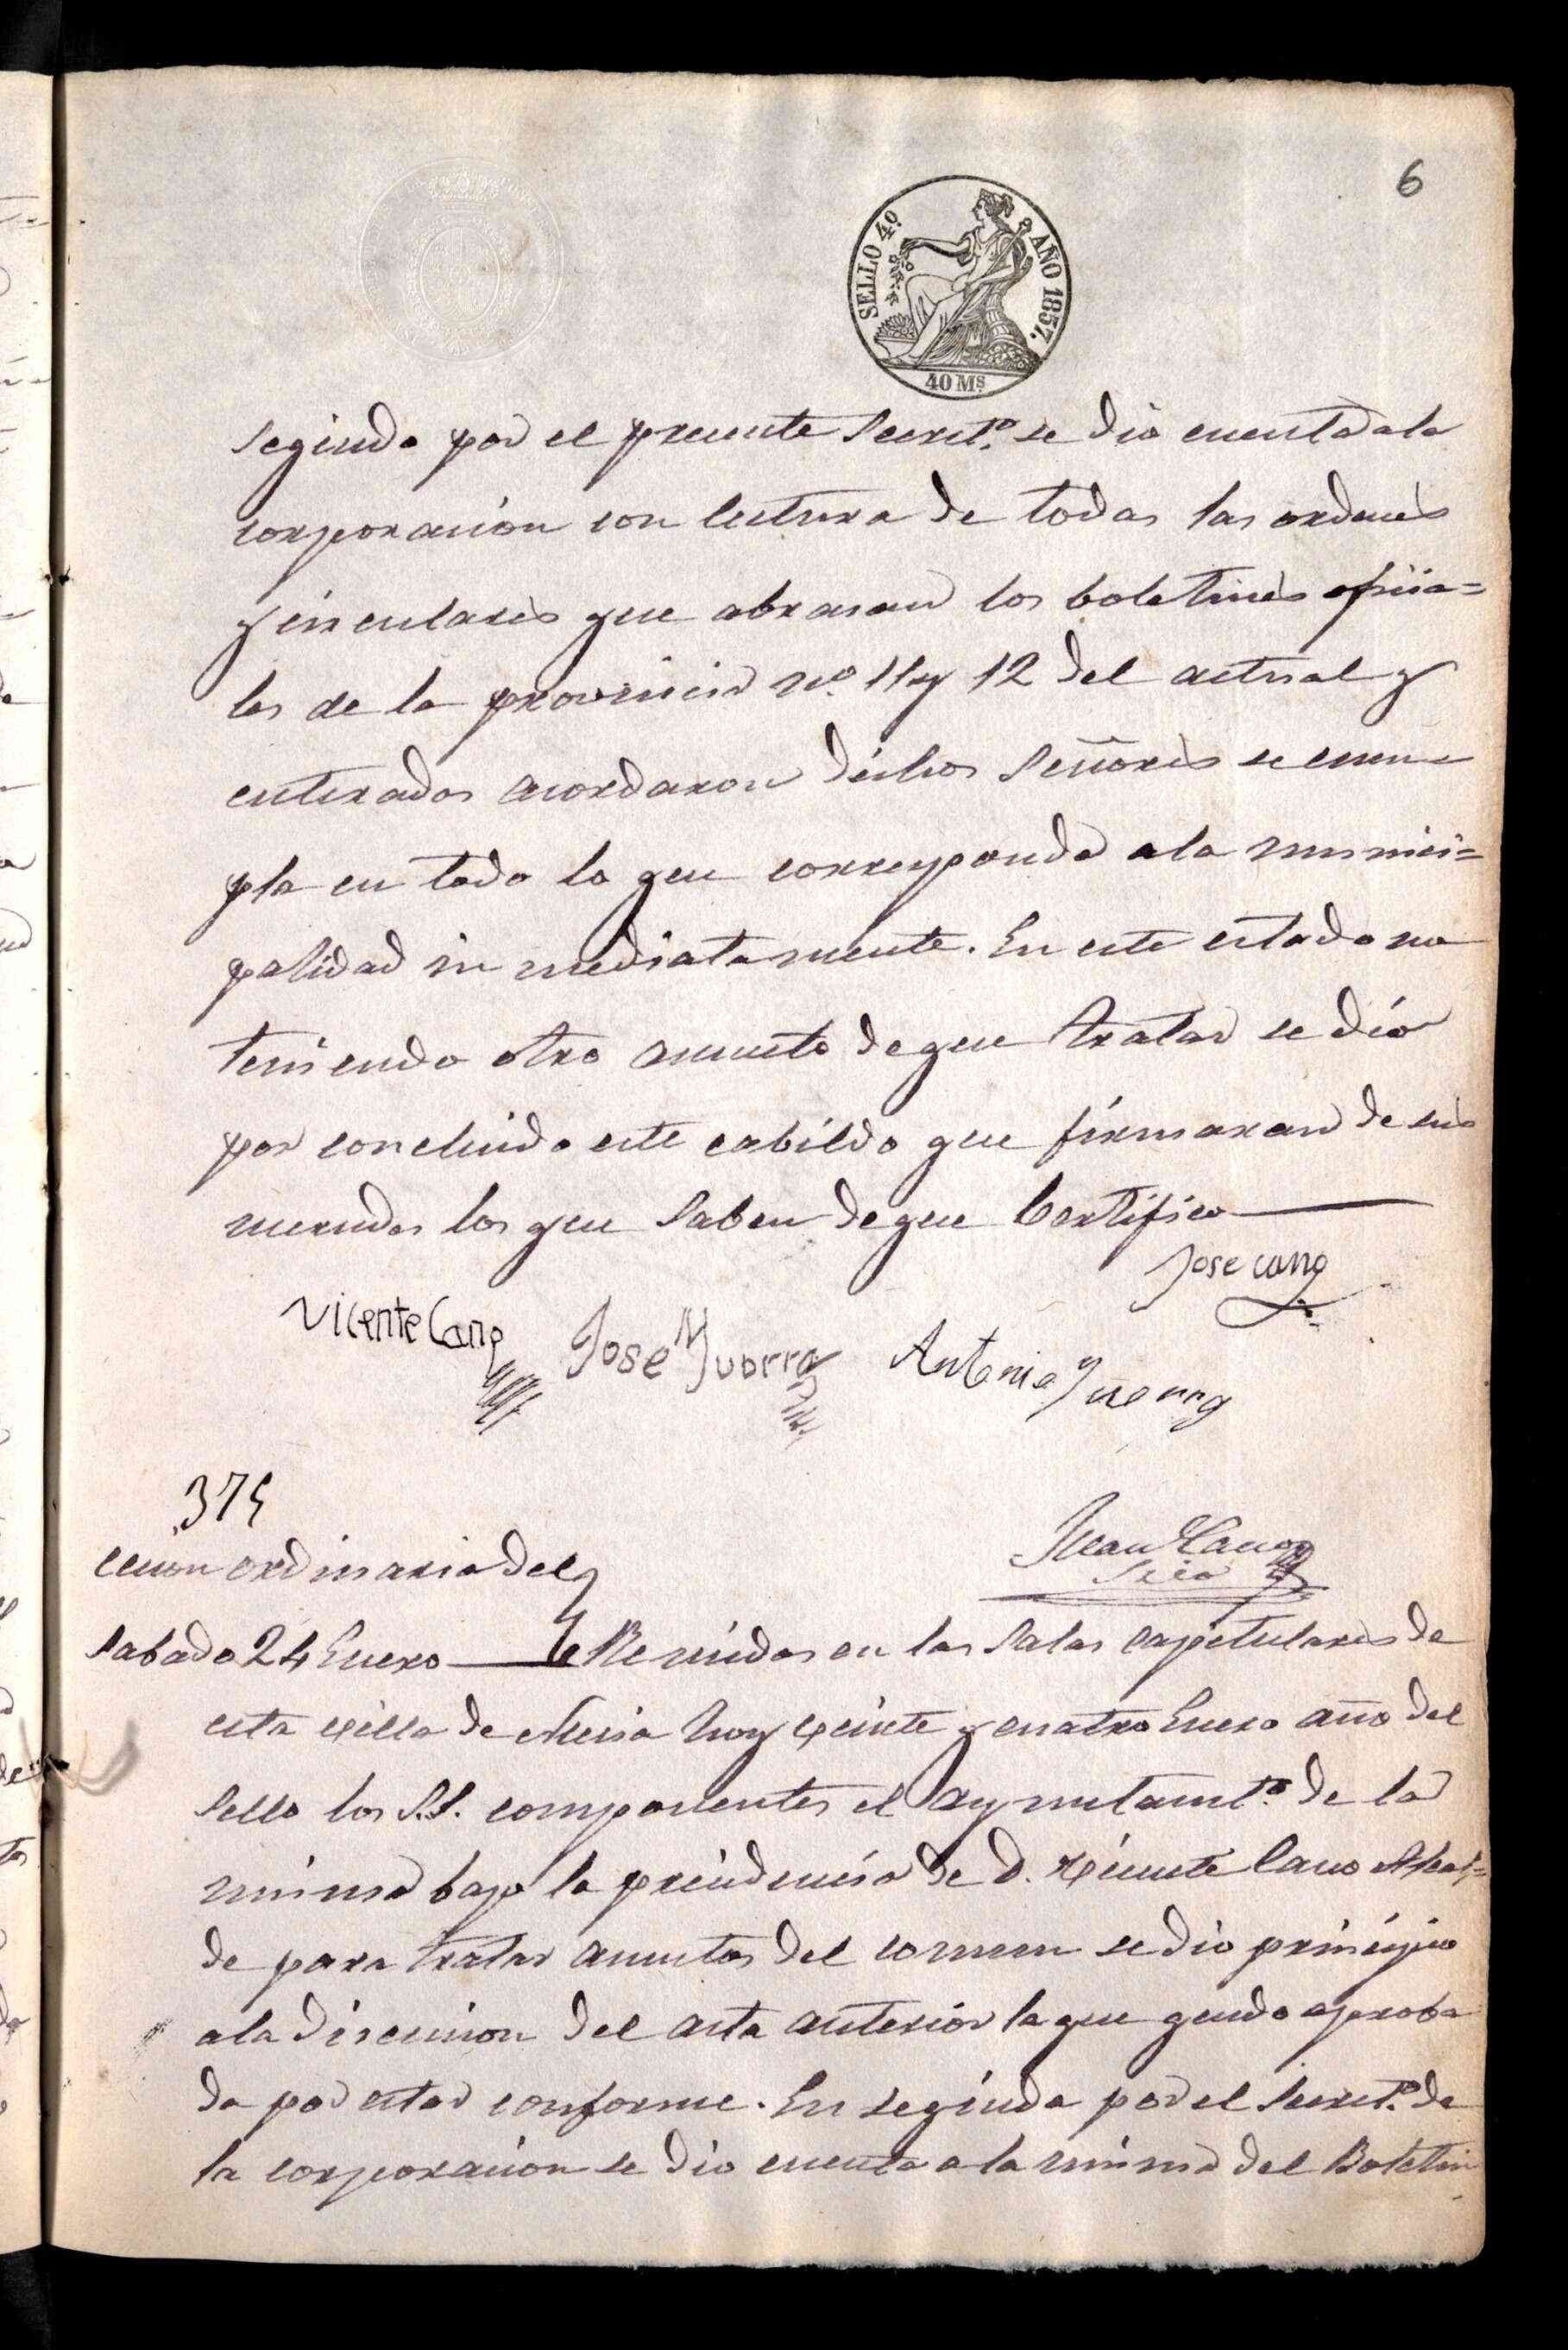 6
SELLO 4º AÑO 1857.
40 Ms.
seguida por el presente Secretº. se dio cuenta a la
corporacion con lectura de todas las ordenes
y circulares que abrasan los boletines oficia=
les de la provincia nº. 11 y 12 del actual y
enterados acordaron dichos Señores se cum=
pla en todo lo que corresponda a la munici=
palidad in mediatamente. En este estado no
teniendo otro asunto de que tratar se dio
por concluido este cabildo que firmaran de sus
mercedes los que saben de que Certifico
Jose Cano
Vicente Cano Jose Yvorra Antonio Yvorra
375
Juan Cano
Srio
cecion ordinaria del
Sabado 24 Enero Reunidos en las Salas capitulares de
esta villa de Nucia hoy veinte y cuatro Enero año del
sello los S.S. componentes el ayuntamtº. de la
misma bajo la precidencia de D. Vicente Cano Alcal=
de para tratar asuntos del comun se dio principio
a la discucion del acta anterior la que quedo aproba
da por estar conforme. En seguida por el Secretº. de
la corporacion se dio cuenta a la misma del Boletin